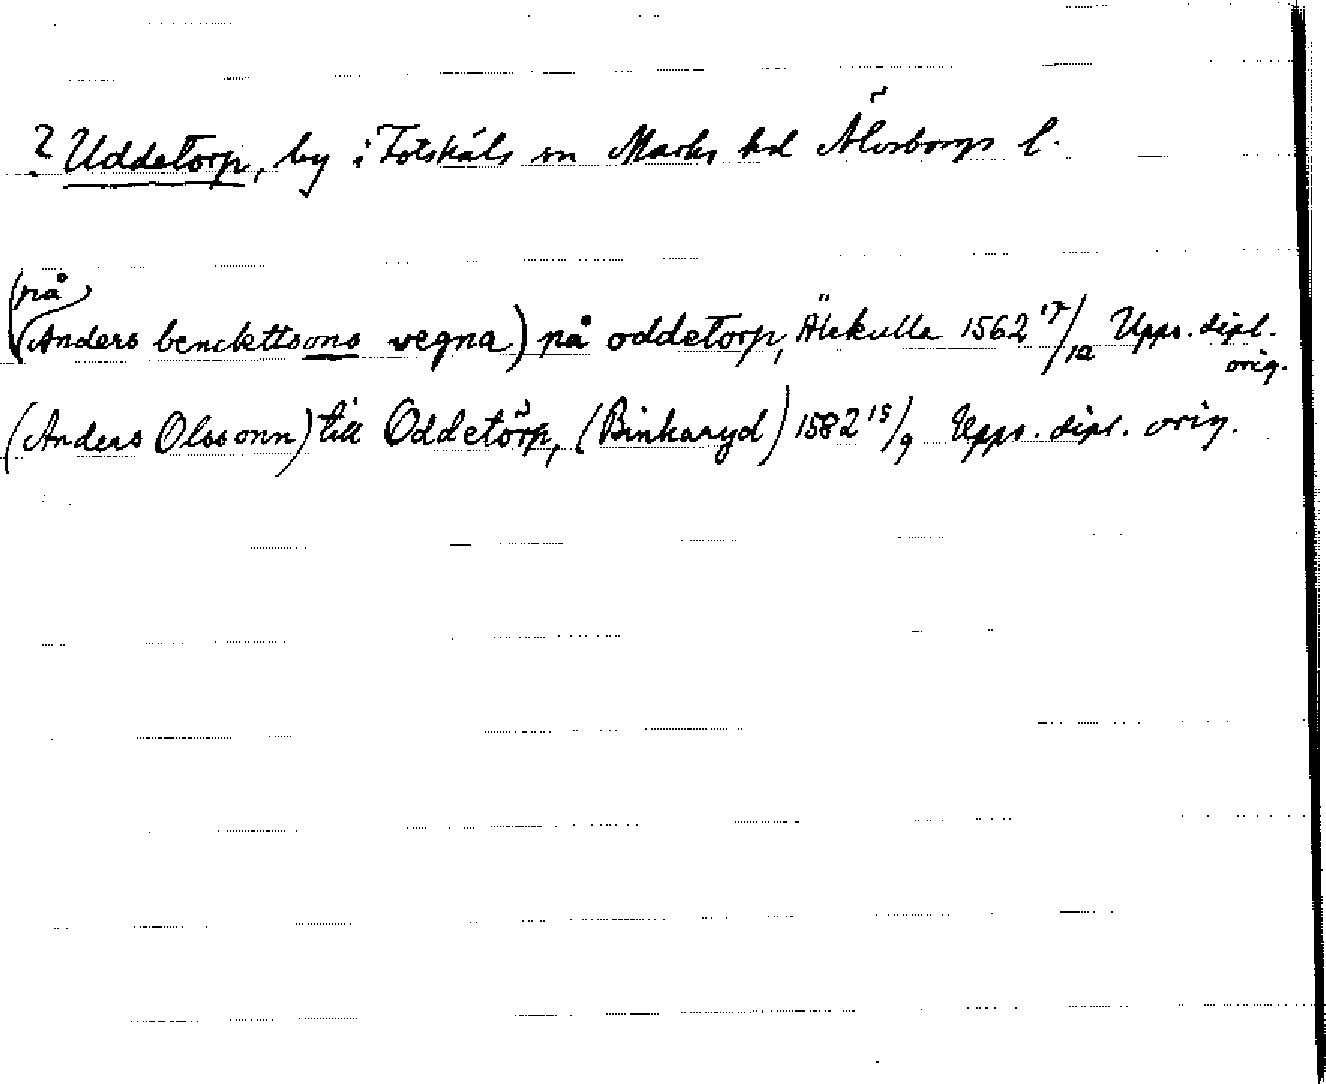 ? Uddetorp, by i Fotskäls sn Marks hd Älvsborgs l.
(på
(Anders benckttsons vegna) på oddetorp, Älekulla 1562 17/12 Upps. dipl.
orig.
(Anders Olssonn) till Oddetŏrp, (Binkaryd) 1582 15/9 Upps. dipl. orig.